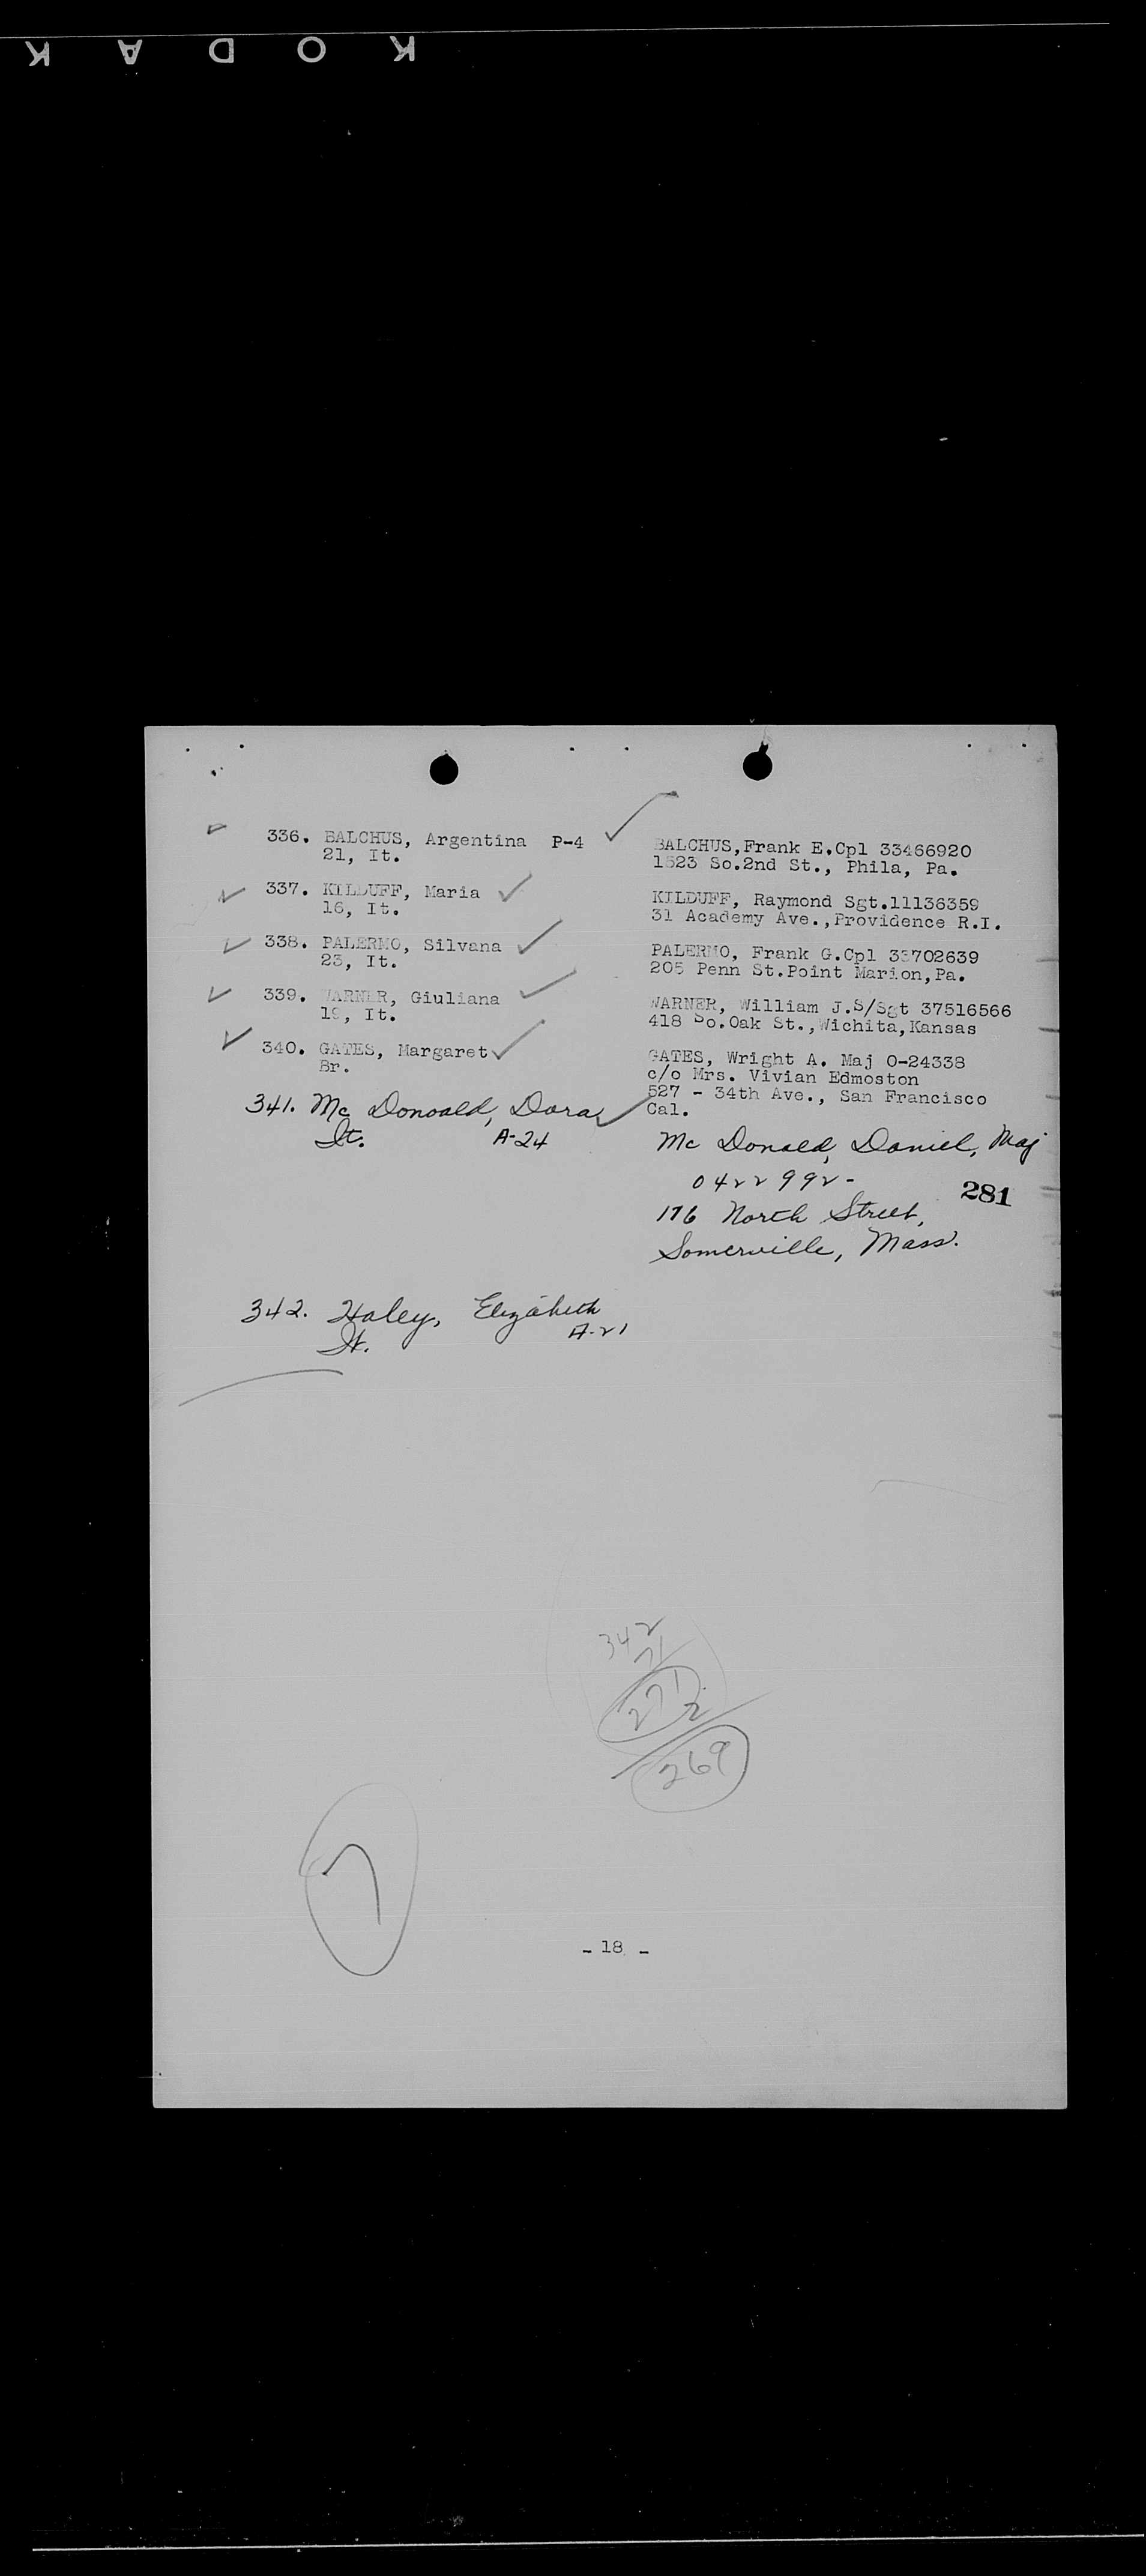 KODAK
336. BALCHUS, Argentina P-4
21, It.
BALCHUS,Frank E.Cpl 33466920
1523 So.2nd St., Phila, Pa.
337. KILDUFF, Maria
16, It.
KILDUFF, Raymond Sgt.11136359
31 Academy Ave.,Providence R.I.
338. PALERMO, Silvana
23, It.
PALERMO, Frank G.Cpl 33702639
205 Penn St.Point Marion,Pa.
339. WARNER, Giuliana
19, It.
WARNER, William J.S/Sgt 37516566
418 So.Oak St.,Wichita,Kansas
340. GATES, Margaret
Br.
GATES, Wright A. Maj 0-24338
c/o Mrs. Vivian Edmoston
527 - 34th Ave., San Francisco
Cal.
341. Mc Donoald, Dora
It. A-24
Mc Donald, Daniel, Maj
0422992-
281
176 North Street,
Somerville, Mass.
342. Haley, Elizabeth
It. A-21
342
71
271
2
269
7
- 18 -